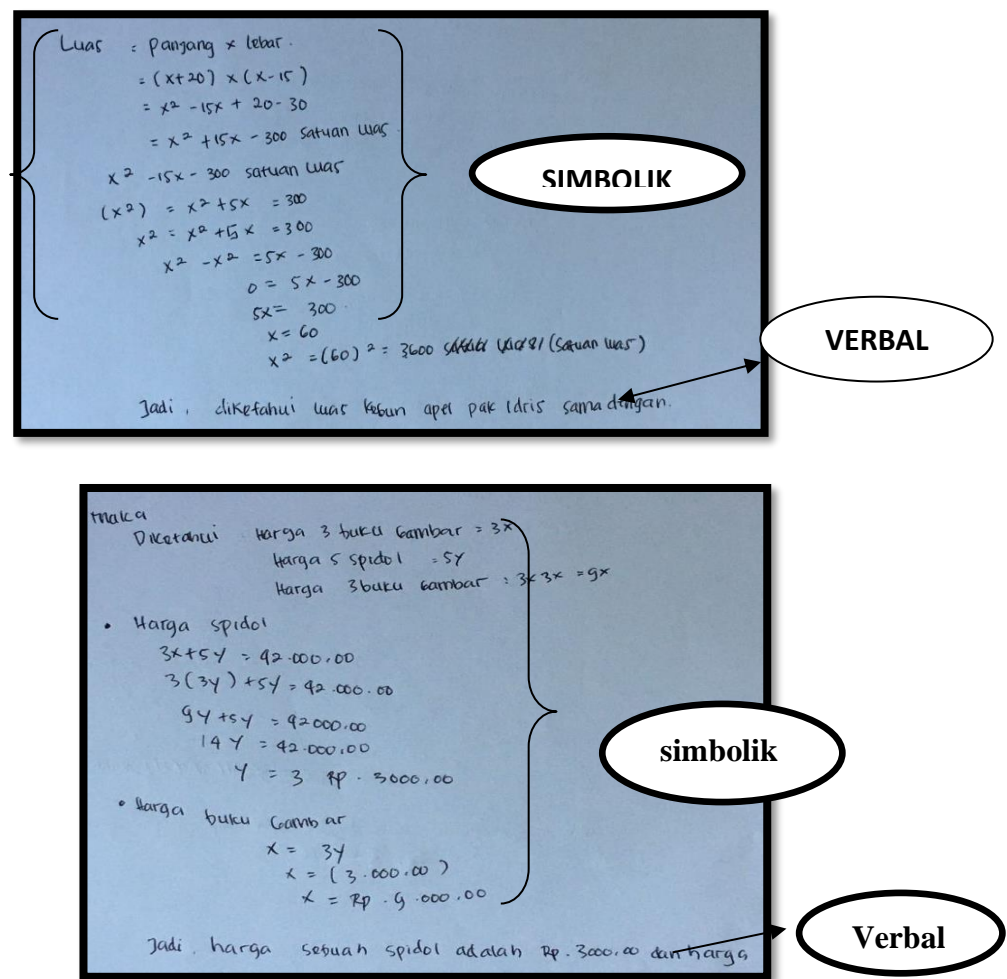 Luas = Panjang x lebar.
= (x+20) x (x-15)
= x² -15x + 20-30
= x² +15x - 300 satuan luas.
x² -15x - 300 satuan luas
(x²) = x² +5x = 300
x² = x² +5x = 300
x² -x² = 5x - 300
0 = 5x - 300
5x = 300.
x = 60
x² = (60)² = 3600 (satuan luas)
Jadi, diketahui luas kebun apel pak Idris sama dengan.
SIMBOLIK
VERBAL
maka
Diketahui Harga 3 buku Gambar = 3x
Harga 5 spidol = 5y
Harga 3 buku Gambar : 3x3x = 9x
• Harga spidol
3x+5y = 42.000.00
3(3y)+5y = 42.000.00
9y+5y = 42000.00
14y = 42.000,00
y = 3 Rp. 3000,00
• Harga buku Gambar
x = 3y
x = (3.000.00)
x = Rp. 9.000,00
Jadi, harga sebuah spidol adalah Rp. 3000,00 dan harga
simbolik
Verbal